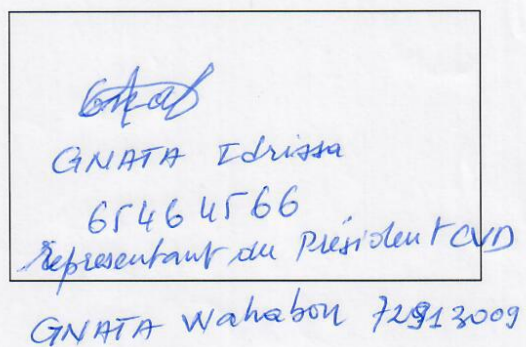 GNATA Idrissa
65464566
Représentant du Président CVD
GNATA Wahabou 72913009